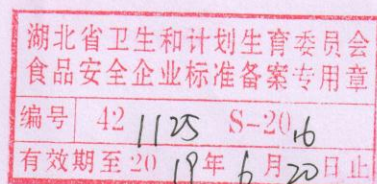 湖北省卫生和计划生育委员会
食品安全企业标准备案专用章
编号 42 1125 S-2016
有效期至2019年6月20日止